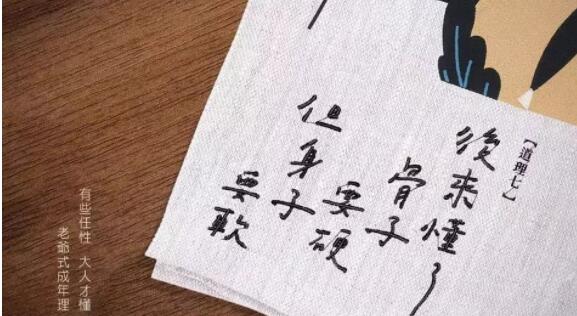 【道理七】
後來懂了
骨子
要硬
但身子
要軟
有些任性 大人才懂
老爺式成年理